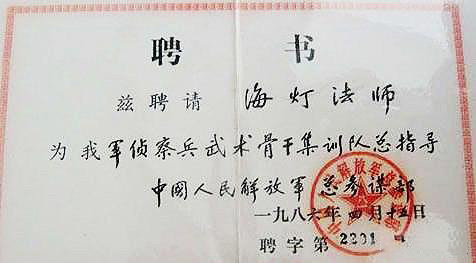 聘 书
兹聘请 海灯法师
为我军侦察兵武术骨干集训队总指导
中國人民解放軍 总参谋部
一九八六年四月十五日
聘字第 2201 号